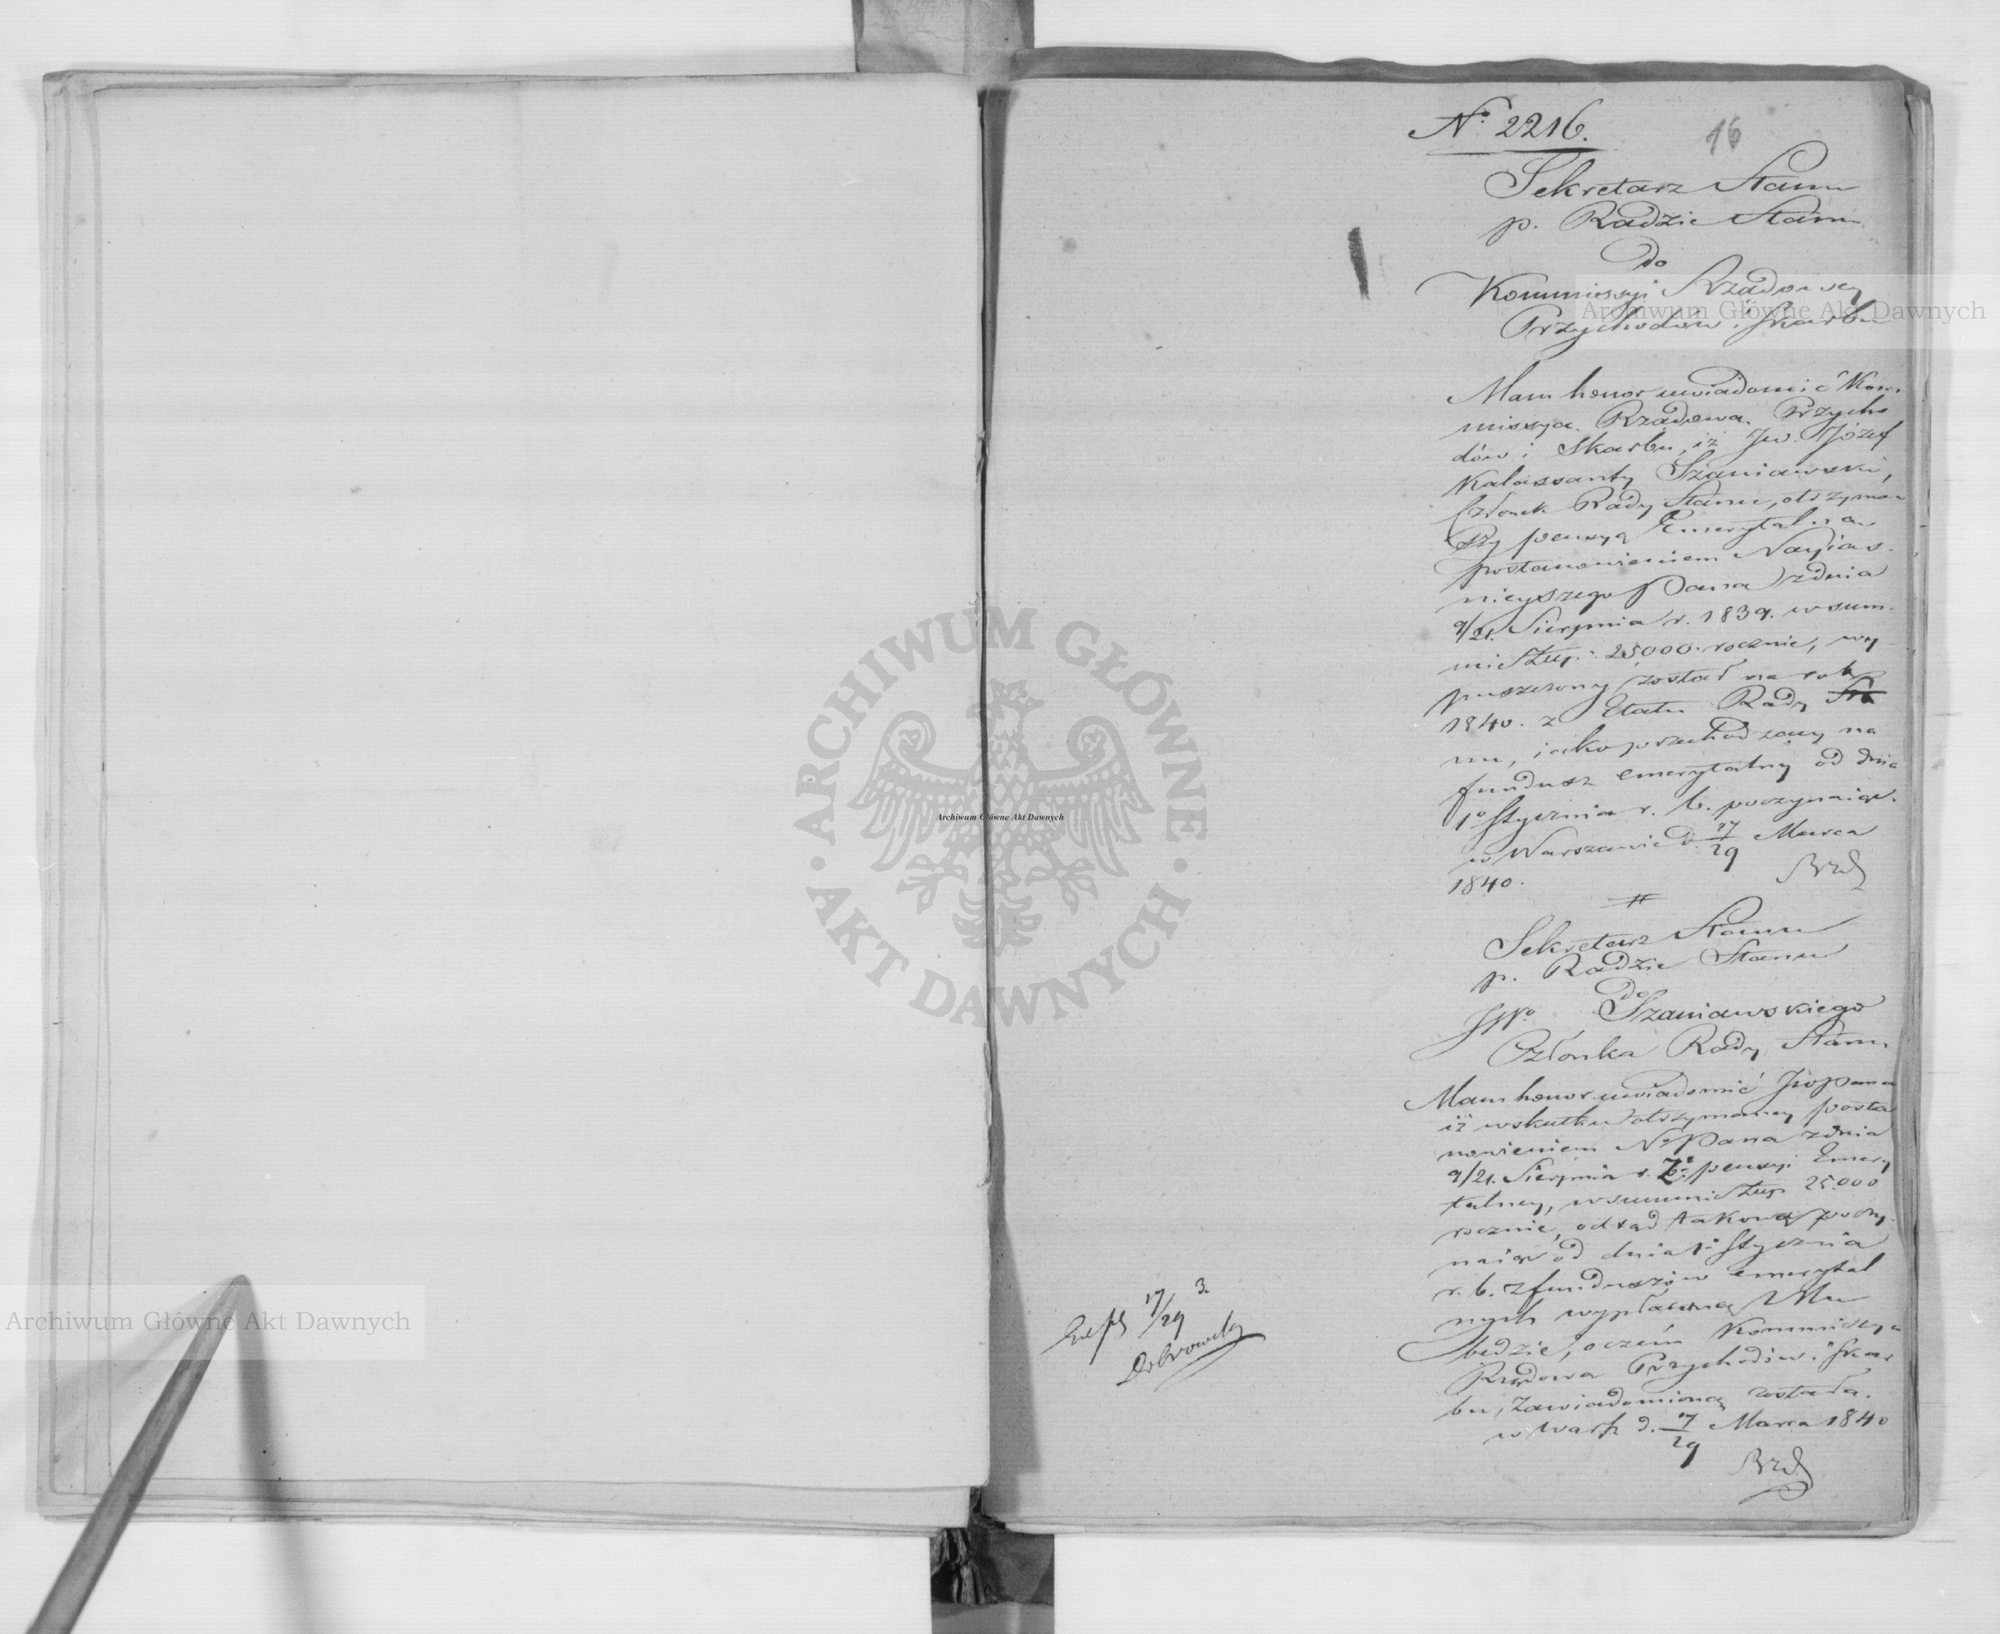 No 2216.
16
Sekretarz Stanu
p. Radzie Stanu
do
Kommissyi Rządowey
Przychodów i Skarbu
Mam honor uwiadomić Kom-
missya Rządowa Przycho
dów i Skarbu, iż Jw. Józef
Kalassanty Szaniawski,
Członek Rady Stanu, otrzymaw
szy pensyą Emerytalną
postanowieniem Nayias-
nieyszego Pana z dnia
9/21. Sierpnia r. 1839. w sum-
mie Złp. 25000. rocznie, wy
puszczony został na rok
1840. z Etatu Rady Sta
nu, jako przechodzący na
fundusz emerytalny od dnia
1o Stycznia r. b. poczynając.
w Warszawie d. 17/29 Marca
1840.
Sekretarz Stanu
p. Radzie Stanu
do
JWo Szaniawskiego
Członka Rady Stanu
Mam honor uwiadomić JwPana
iż w skutku otrzymaney posta
nowieniem No Pana z dnia
9/21. Sierpnia r. z. pensyi Emery
talney, w summie Złp. 25.000
rocznie, odtąd takowa poczy-
naiąc od dnia 1. Stycznia
r. b. z funduszów emerytal
nych wypłacaną Mu
będzie, o czém Kommissya
Rządowa Przychodów i Skar
bu, zawiadomioną została.
w Warsz d. 17/29 Marca 1840
17/29 3.
Archiwum Główne Akt Dawnych
Archiwum Główne Akt Dawnych
Archiwum Główne Akt Dawnych
ARCHIWUM GŁÓWNE
AKT DAWNYCH